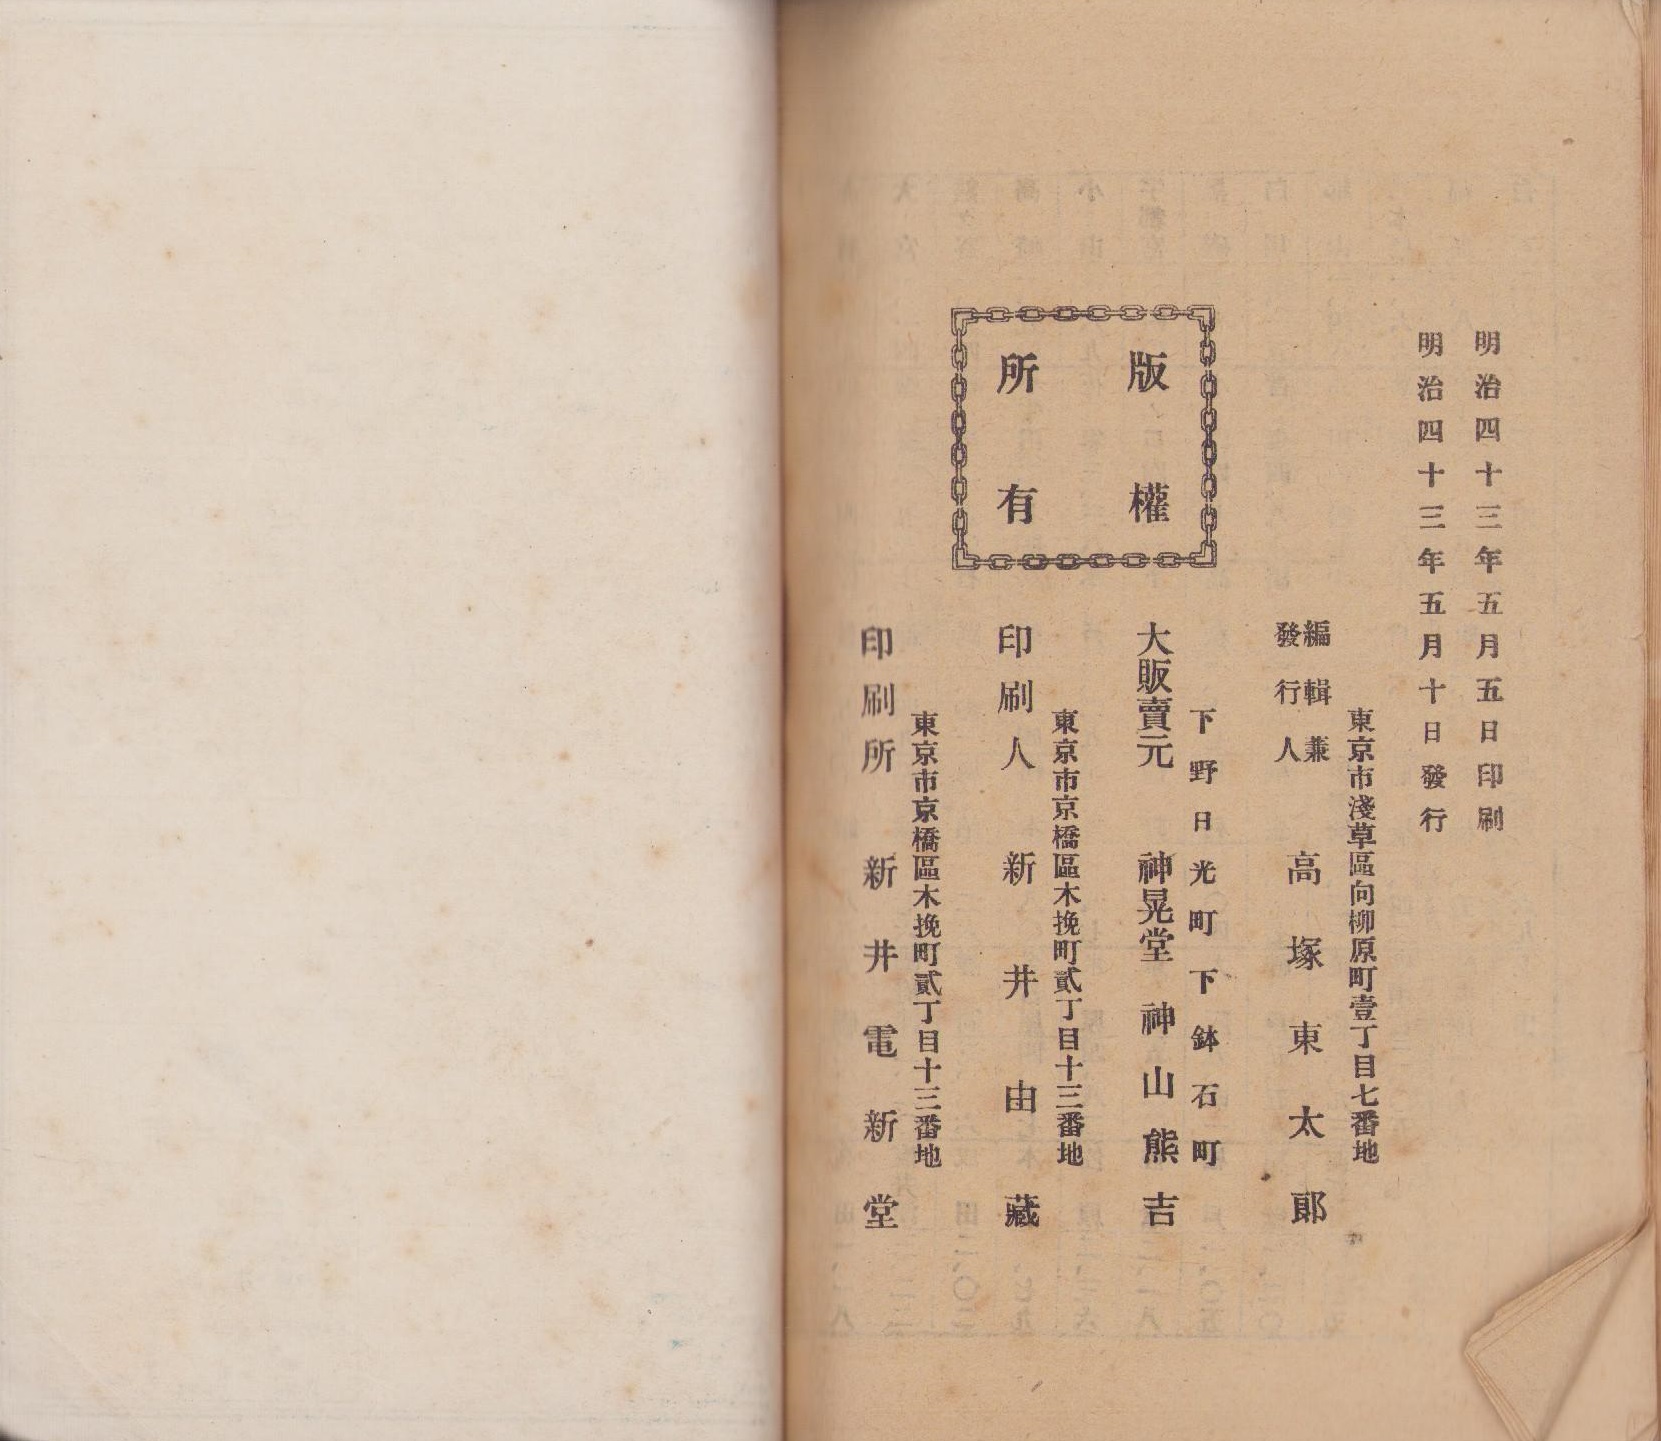 明治四十三年五月五日印刷
明治四十三年五月十日發行
版權
所有
東京市淺草區向柳原町壹丁目七番地
編輯兼
發行人
高塚東太郎
下野日光町下鉢石町
大販賣元 神晃堂 神山熊吉
東京市京橋區木挽町貳丁目十三番地
印刷人 新井由藏
東京市京橋區木挽町貳丁目十三番地
印刷所 新井電新堂